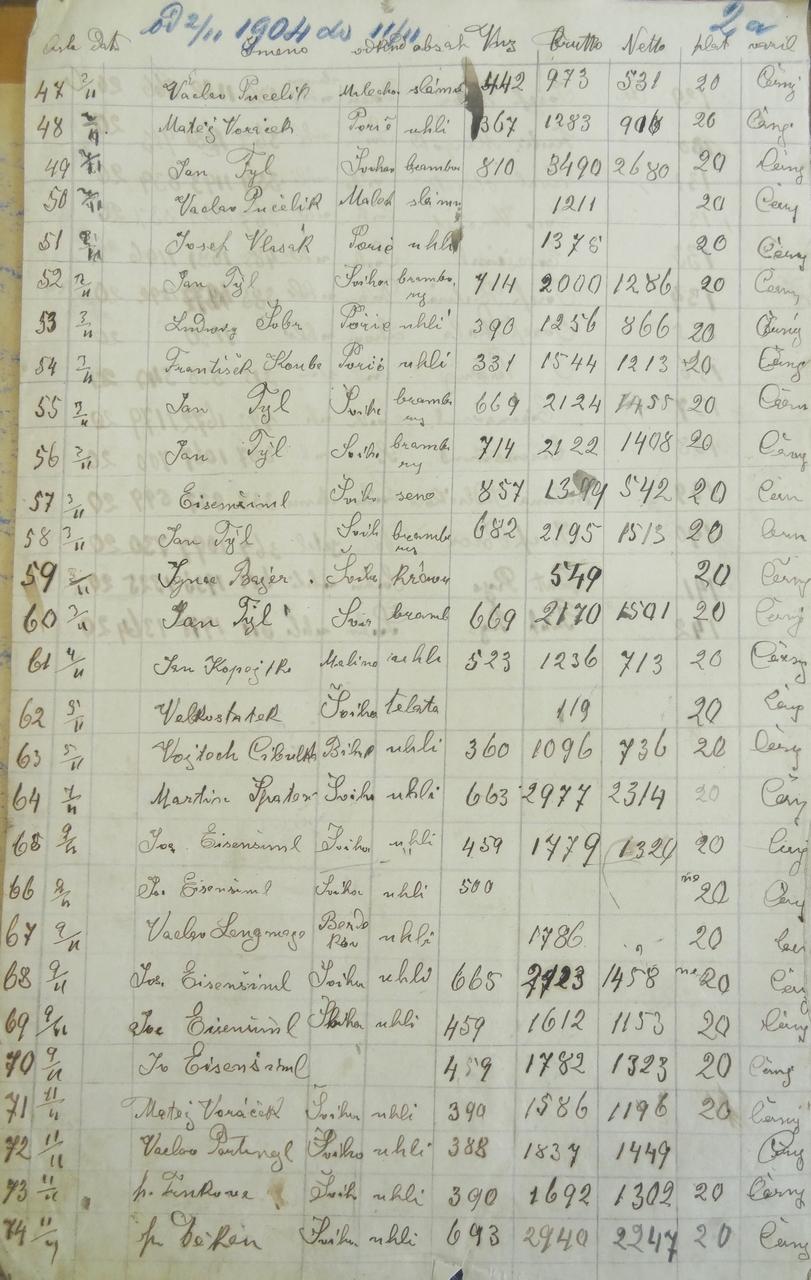 od 2/11 1904 do 11/11 2a
Dat Jmeno odkud obsah Vuz brutto Netto plat vážil
47 2/11 Václav Pucelik slámа 442 973 531 20 Černý
48 Matěj Voráček Poříč uhlí 367 1283 916 20 Černý
49 Jan Tyl brambo 810 3490 2680 20 Černý
50 Vaclav Pucelik slámu 1211 20 Černý
51 Josef Vlasák Poříč uhlí 1375 20 Černý
52 2/11 Jan Tyl brambo 714 2000 1286 20 Černy
ry
53 3/11 Ludwig Poříč uhlí 390 1256 866 20 Černý
54 3/11 František Koube Poříč uhlí 331 1544 1213 20 Černý
55 3/11 Jan Tyl Sviho brambo 669 2124 1455 20 Čern
ry
56 3/11 Jan Tyl Sviho brambo 714 2122 1408 20 Černy
ry
57 3/11 Eisenšiml Sviho seno 857 1399 542 20 Čern
58 3/11 Jan Tyl Svih brambo 682 2195 1513 20 Čern
ry
59 3/11 Ignac Bajer 549 20 Černý
60 3/11 Jan Tyl bramb 669 2170 1501 20 Černý
61 4/11 Jan uhlí 523 1236 713 20 Černý
62 5/11 Velkostatek Šviho telata 119 20 Černý
63 5/11 Vojtěch uhlí 360 1096 736 20 Černý
64 7/11 Martin Šviho uhlí 663 2977 2314 20 Černý
65 9/11 Jos. Eisenšiml Šviho uhlí 459 1779 1320 20 Černý
66 9/11 Jos. Eisenšiml Šviho uhlí 500 ne 20 Černý
67 9/11 Vaclav uhlí 1786 20
68 9/11 Jos. Eisenšiml Šviho uhlí 665 2123 1458 ne 20 Čern
69 9/11 Jos Eisenšiml Šviho uhlí 459 1612 1153 20 Černý
70 9/11 Jo Eisenšiml 459 1782 1323 20 Černý
71 11/11 Matěj Voráček Šviho uhlí 390 1586 1196 20 Černý
72 11/11 Vaclav Šviho uhlí 388 1837 1449 Černý
73 11/11 p. Šviho uhlí 390 1692 1302 20 Černý
74 11/11 p. Šviho uhlí 693 2940 2247 20 Černý